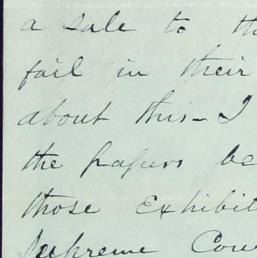 a sale to th
fail in their
about this - I
the papers be
those Exhibit
Supreme Cou